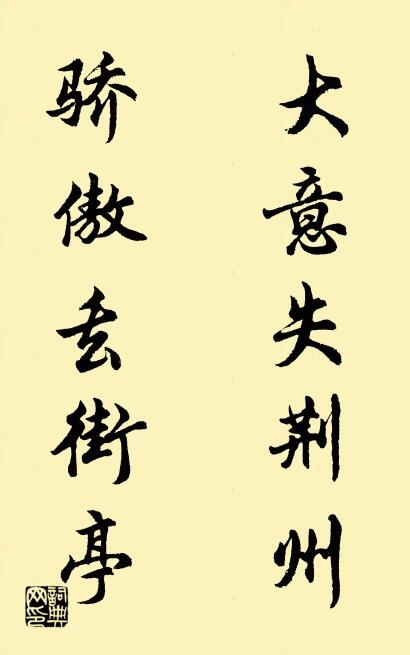 大意失荆州
骄傲丢街亭
詞典网印